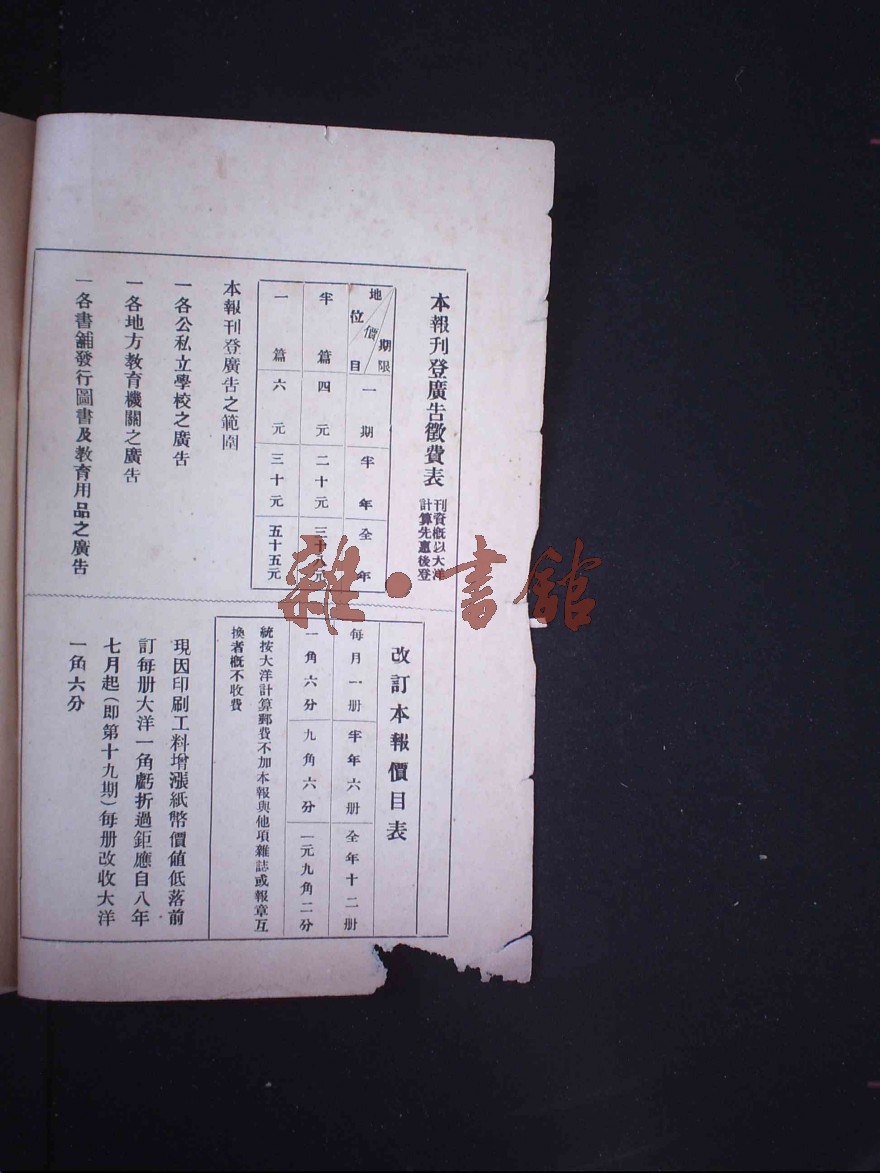 本報刊登廣告徵費表
刊資概以大洋
計算先惠後登
期限
價目
地位
一期
半年
全年
半篇
四元
二十元
三十八元
一篇
六元
三十元
五十五元
本報刊登廣告之範圍
一各公私立學校之廣告
一各地方教育機關之廣告
一各書舖發行圖書及教育用品之廣告
改訂本報價目表
每月一册
半年六册
全年十二册
一角六分
九角六分
一元九角二分
統按大洋計算郵費不加本報與他項雜誌或報章互
換者概不收費
現因印刷工料增漲紙幣價値低落前
訂每册大洋一角虧折過鉅應自八年
七月起(即第十九期)每册改收大洋
一角六分
雜·書館